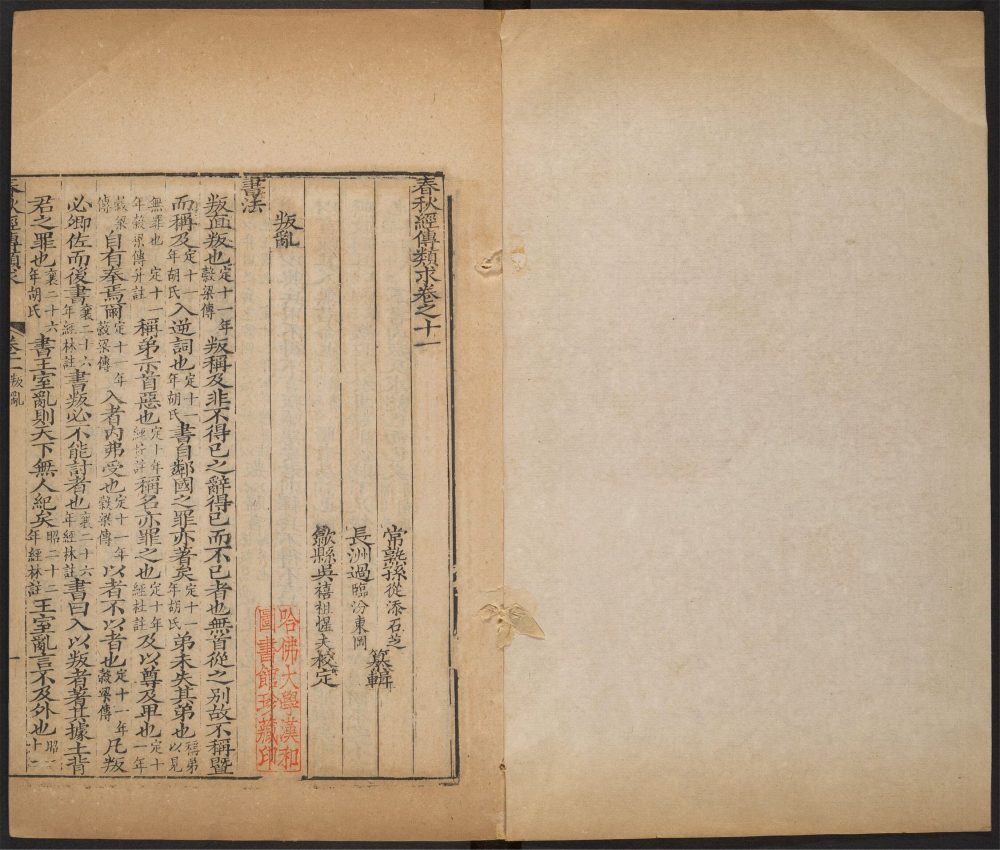 春秋經傳類求卷之十一
常熟孫從添石芝
長洲過臨汾東岡
纂輯
歙縣吳禧祖惺夫校定
哈佛大學漢和
圖書館珍藏印
叛亂
書法
叛直叛也定十一年穀梁傳叛稱及非不得已之辭得已而不已者也無首從之別故不稱暨
而稱及定十一年胡氏入逆詞也定十一年胡氏書自鄰國之罪亦著矣定十一年胡氏弟未失其弟也稱弟以見
無罪也定十一年穀梁傳弁註稱弟示首惡也定十年經註稱名亦罪之也定十年經杜註及以尊及卑也定十一年
穀梁傳自有奉焉爾定十一年穀梁傳入者內弗受也定十一年穀梁傳以者不以者也定十一年穀梁傳凡叛
必卿佐而後書襄二十六年經林註書叛必不能討者也襄二十六年經林註書曰入以叛者著其據土背
君之罪也襄二十六年胡氏書王室亂則天下無人紀矣昭二十二年經林註王室亂言不及外也昭二十二
春秋經傳類求
卷十一
叛亂
一